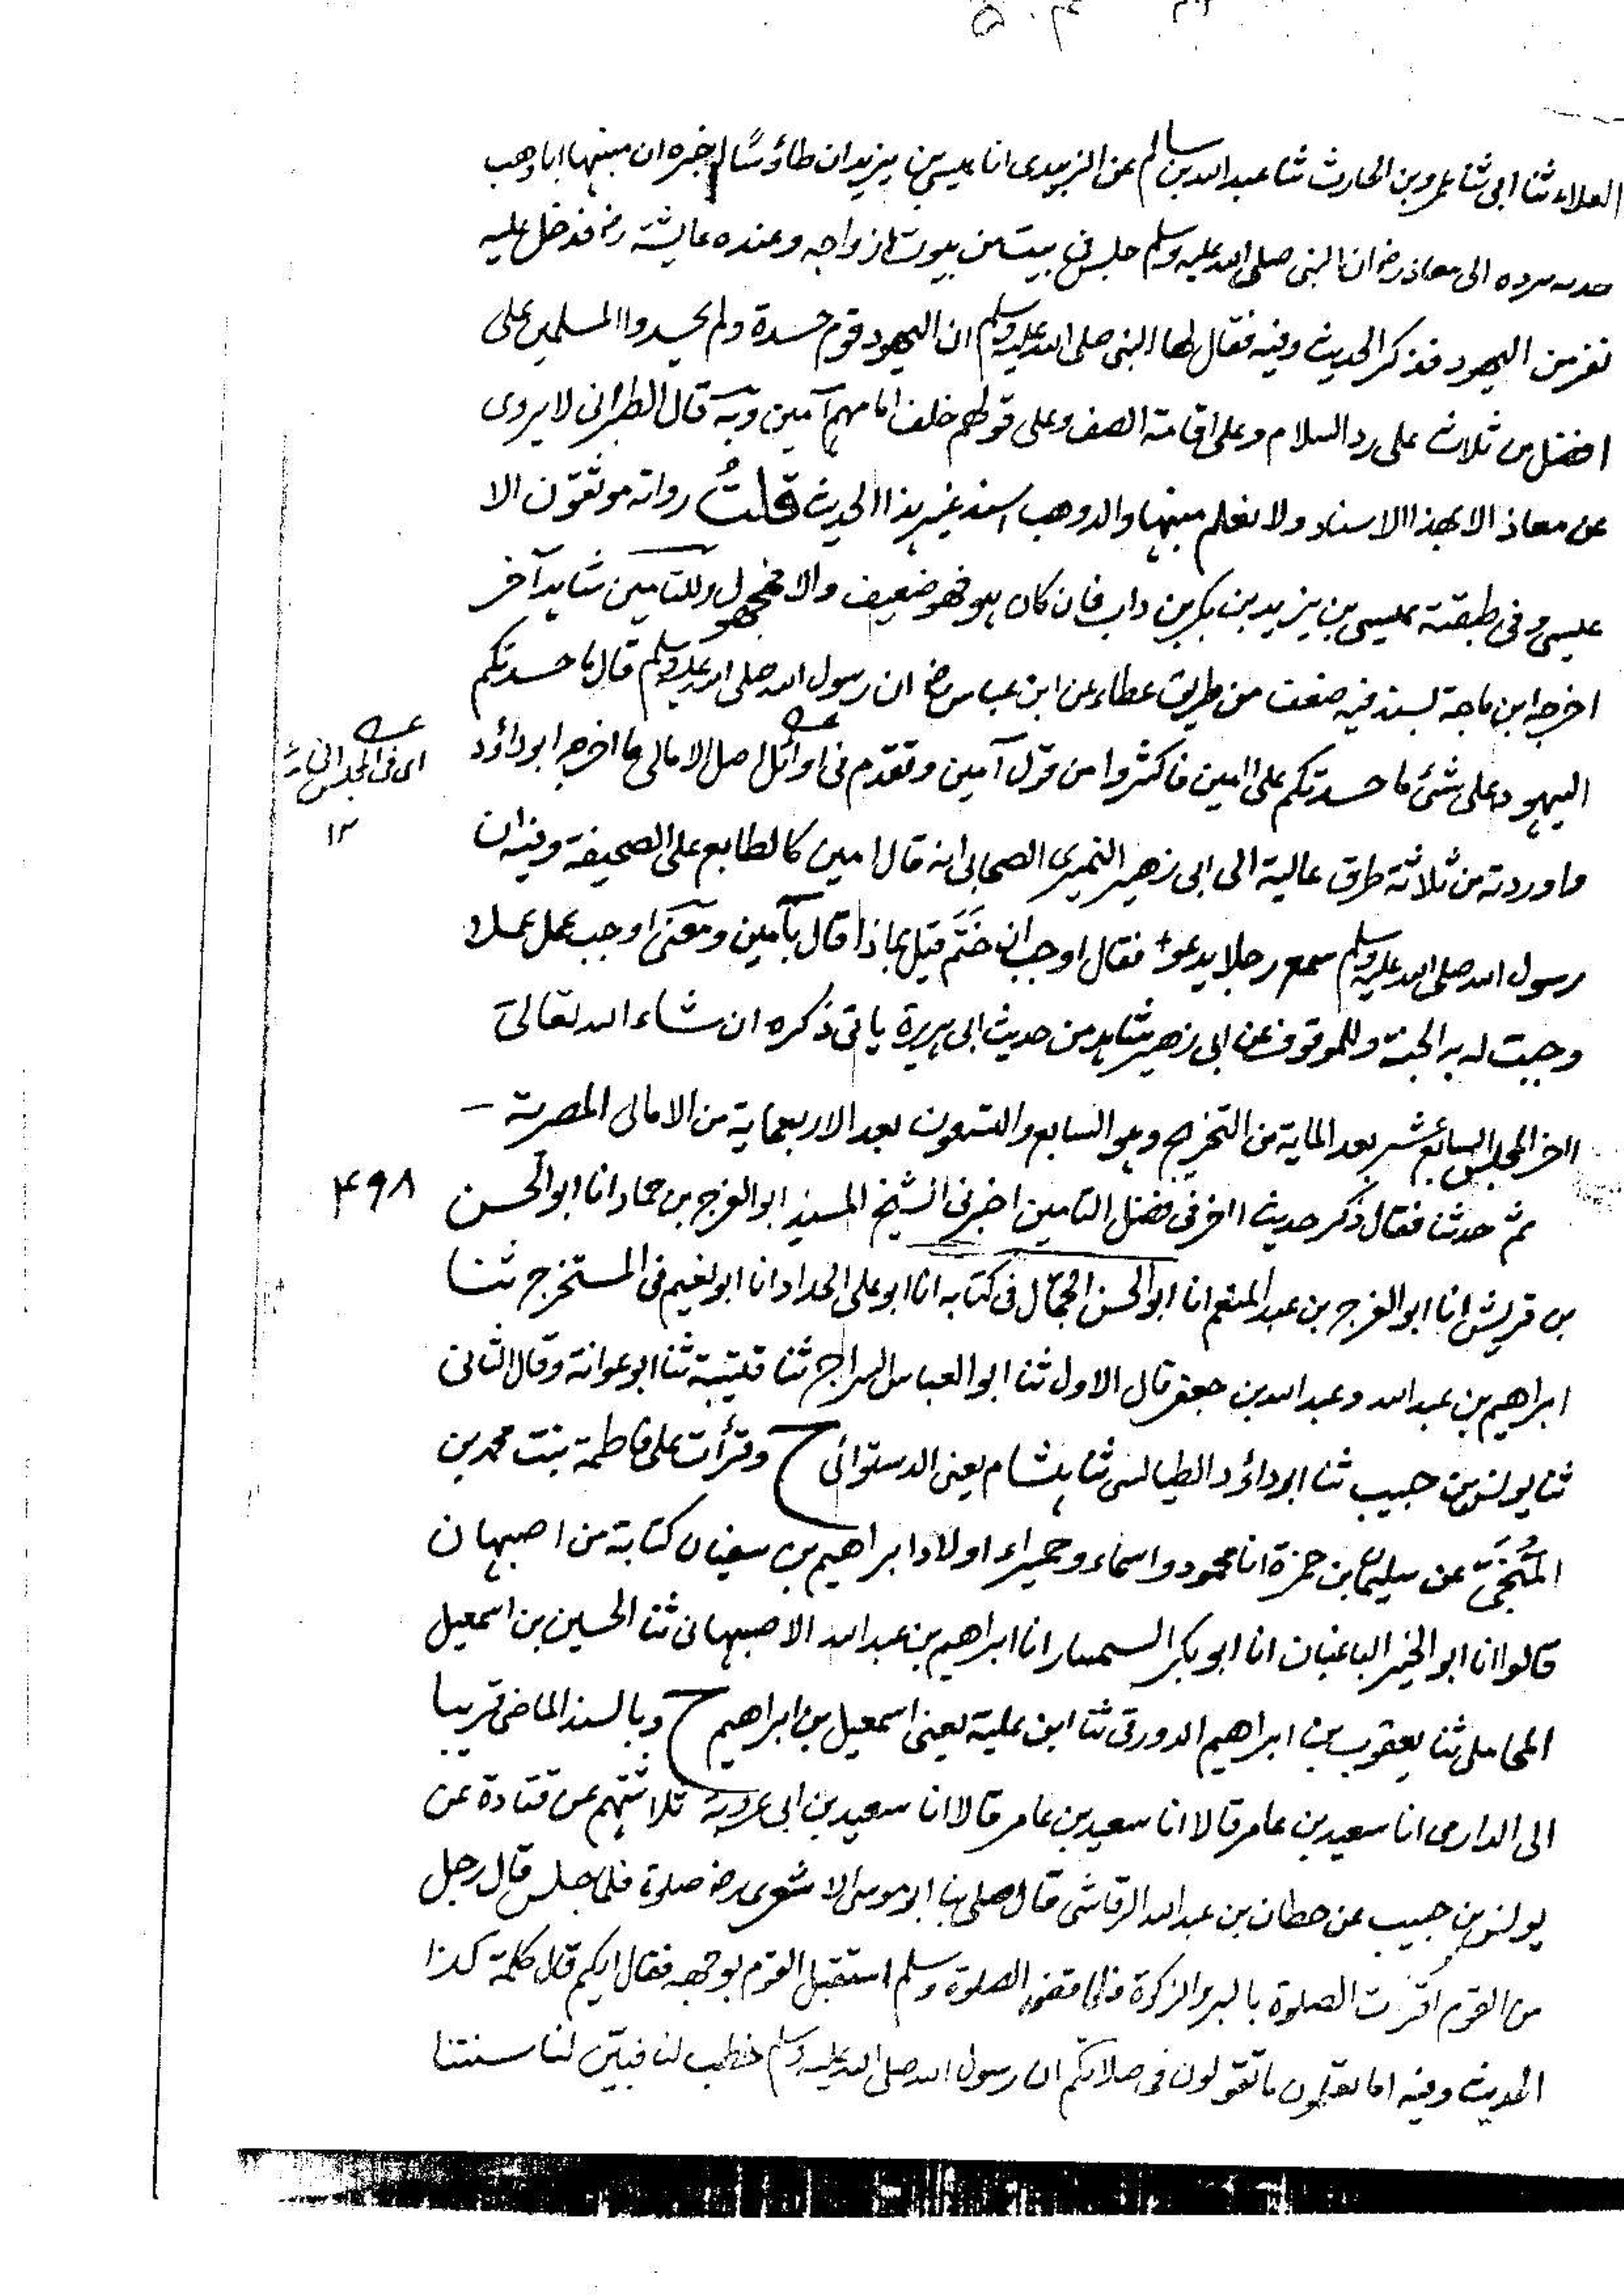 العلاء ثنا ابى ثنا عمرو بن الحارث ثنا عبد الله بن سالم عن الزبيدى انا عيسى بن يزيد ان طاؤسًا اخبره ان منبها ابا وهب
حدثه يرده الى معاذ رض ان النبى صلى الله عليه وسلم جلس فى بيت من بيوت ازواجه وعنده عايشة رض فدخل عليه
نفر من اليهود فذكر الحديث وفيه فقال لها النبى صلى الله عليه وسلم ان اليهود قوم حسدة ولم يحسدوا المسلمين على
افضل من ثلاث على رد السلام وعلى اقامة الصف وعلى قولهم خلف امامهم آمين وبه قال الطبرانى لا يروى
عن معاذ الا بهذا الاسناد ولا نعلم منبها والد وهب اسند غير هذا الحديث قلتُ رواته موثقون الا
عيسى وفى طبقته عيسى بن يزيد بن بكر بن داب فان كان هو فهو ضعيف والا فمجهول وللتامين شاهد آخر
اخرجه ابن ماجة بسند فيه ضعف من طريق عطاء عن ابن عباس رض ان رسول الله صلى الله عليه وسلم قال ما حسدتكم
اليهود على شئ ما حسدتكم على امين فاكثروا من قول آمين وتقدم فى اوائل اصل الامالى ما اخرجه ابو داؤد
اى فى المجلس
١٢
واوردته من ثلاثة طرق عالية الى ابى زهير النميرى الصحابى انه قال امين كالطابع على الصحيفة وفيه ان
رسول الله صلى الله عليه وسلم سمع رجلا يدعو فقال اوجب ان ختم قيل بماذا قال بآمين ومعنى اوجب عمل عملا
وجبت له به الجنة وللموقوف عن ابى زهير شاهد من حديث ابى هريرة ياتى ذكره ان شاء الله تعالى
اخر المجلس السابع عشر بعد الماية من التخريج وهو السابع والتسعون بعد الاربعماية من الامالى المصرية –
٤٩٨
ثم حدثنا فقال ذكر حديث اخر فى فضل التامين اخبرنى الشيخ المسند ابو الفرج بن حماد انا ابو الحسن
بن قريش انا ابو الفرج بن عبد المنعم انا ابو الحسن الجمّال فى كتابه انا ابو على الحداد انا ابو نعيم فى المستخرج ثنا
ابراهيم بن عبد الله وعبد الله بن جعفر قال الاول ثنا ابو العباس السراج ثنا قتيبة ثنا ابو عوانة وقال الثانى
ثنا يونس بن حبيب ثنا ابو داؤد الطيالسى ثنا هشام يعنى الدستوائى ح وقرأت على فاطمة بنت محمد بن
المُنَجَّى عن سليمان بن حمزة انا محمود واسماء وحميراء اولاد ابراهيم بن سفيان كتابة من اصبهان
قالوا انا ابو الخير الباغبان انا ابو بكر السمسار انا ابراهيم بن عبد الله الاصبهانى ثنا الحسين بن اسمعيل
المحاملى ثنا يعقوب بن ابراهيم الدورقى ثنا ابن علية يعنى اسمعيل بن ابراهيم ح وبالسند الماضى قريبا
الى الدارمى انا سعيد بن عامر قالا انا سعيد بن عامر قالا انا سعيد بن ابى عروبة ثلاثتهم عن قتادة عن
يونس بن جبير عن حطان بن عبد الله الرقاشى قال صلى بنا ابو موسى الاشعرى رض صلوة فلما جلس قال رجل
من القوم اقرت الصلوة بالبر والزكوة فلما قضى الصلوة وسلم استقبل القوم بوجهه فقال ايكم قال كلمة كذا
الحديث وفيه اما تعلمون ما تقولون فى صلاتكم ان رسول الله صلى الله عليه وسلم خطب لنا فبيّن لنا سنتنا